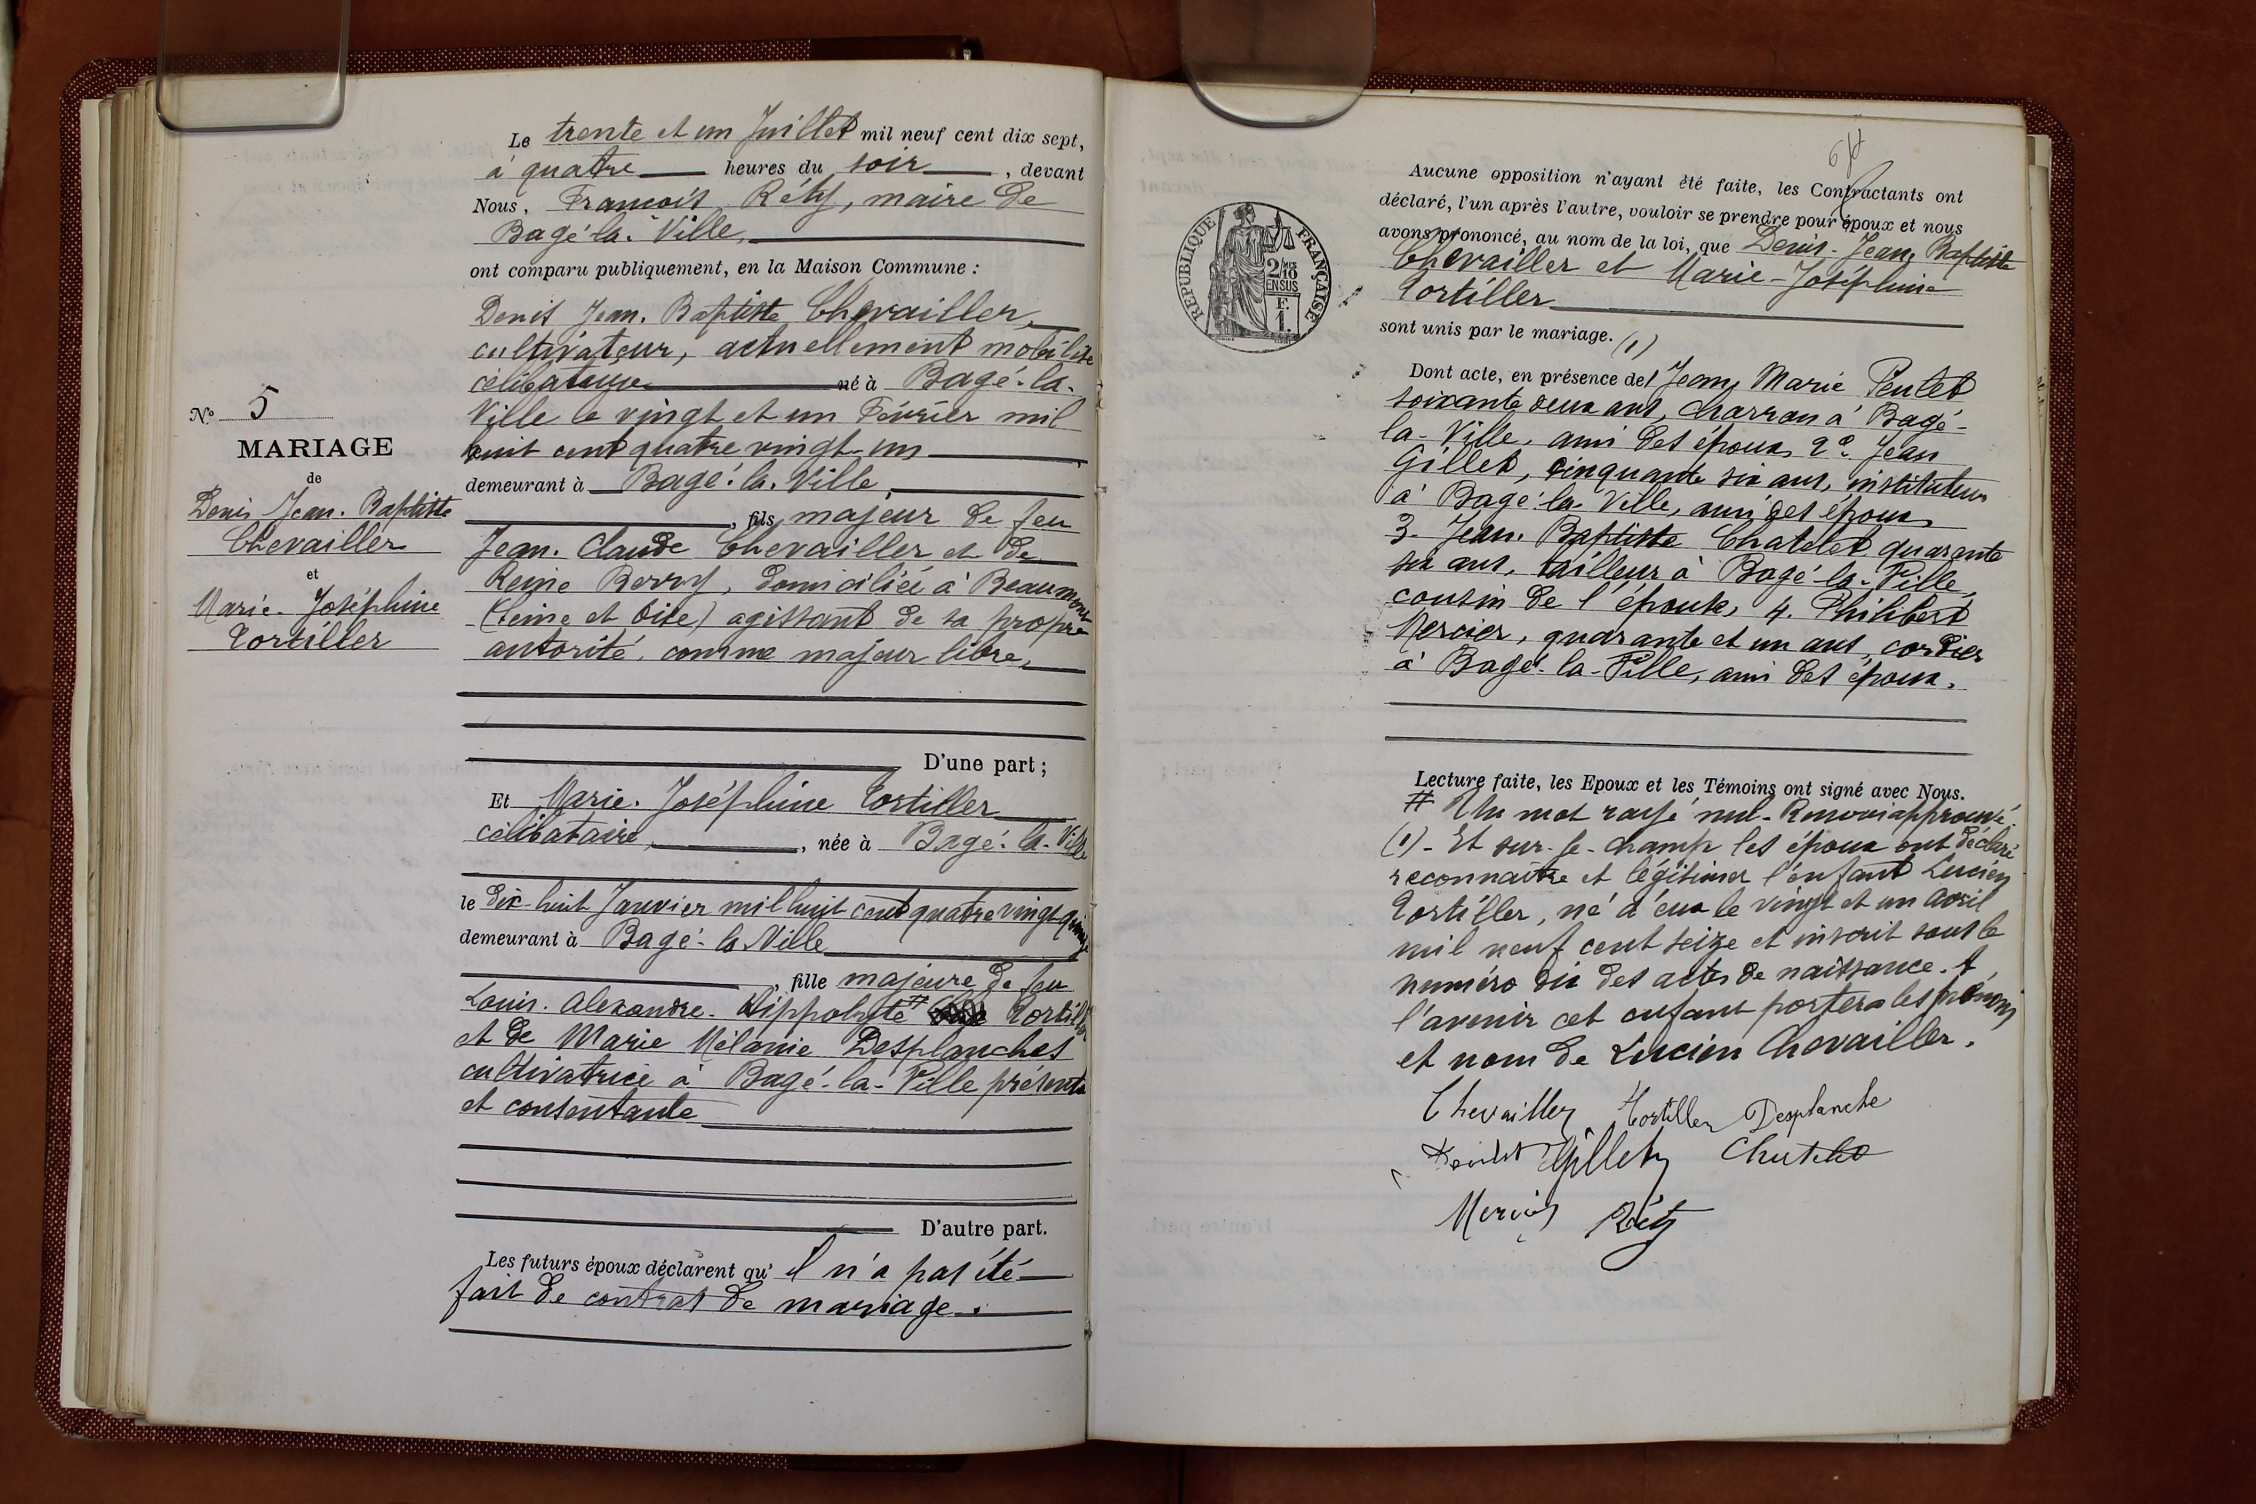 Le trente et un Juillet mil neuf cent dix sept,
à quatre heures du soir, devant
Nous, François Réty, maire de
Bagé-la-Ville,
ont comparu publiquement, en la Maison Commune :
Denis Jean-Baptiste Chevailler,
cultivateur, actuellement mobilisé
célibataire né à Bagé-la-
Ville le vingt et un Février mil
huit cent quatre vingt-un
demeurant à Bagé-la-Ville,
, fils majeur de feu
Jean-Claude Chevailler et de
Reine Berry, domiciliée à Beaumont
(Seine et Oise) agissant de sa propre
autorité, comme majeur libre,
D'une part ;
Et Marie-Joséphine Tortiller
célibataire, , née à Bagé-la-Ville
le dix-huit Janvier mil huit cent quatre vingt quinze
demeurant à Bagé-la-Ville
, fille majeure de feu
Louis-Alexandre-Hippolyte # Tortiller
et de Marie Mélanie Desplanches
cultivatrice à Bagé-la-Ville présente
et consentante
D'autre part.
Les futurs époux déclarent qu'il n'a pas été
fait de contrat de mariage.
N° 5
MARIAGE
de
Denis Jean-Baptiste
Chevailler
et
Marie-Joséphine
Tortiller
Aucune opposition n'ayant été faite, les Contractants ont
déclaré, l'un après l'autre, vouloir se prendre pour époux et nous
avons prononcé, au nom de la loi, que Denis-Jean-Baptiste
Chevailler et Marie-Joséphine
Tortiller
sont unis par le mariage. (1)
Dont acte, en présence de 1 Jean Marie Pentet
soixante deux ans, charron à Bagé-
la-Ville, ami des époux 2° Jean
Gillet, cinquante six ans, instituteur
à Bagé-la-Ville, ami des époux
3- Jean-Baptiste Chatelet quarante
six ans, tailleur à Bagé-la-Ville,
cousin de l'épouse, 4. Philibert
Mercier, quarante et un ans, cordier
à Bagé-la-Ville, ami des époux.
Lecture faite, les Epoux et les Témoins ont signé avec Nous.
# Un mot rayé nul - Renvoi approuvé.
(1) - Et sur-le-champ les époux ont déclaré
reconnaître et légitimer l'enfant Lucien
Tortiller, né d'eux le vingt et un avril
mil neuf cent seize et inscrit sous le
numéro dix des actes de naissance. A
l'avenir cet enfant portera les prénoms
et nom de Lucien Chevailler.
Chevailler Tortiller Desplanche
Gillet Chatelet
Mercier Réty
RÉPUBLIQUE FRANÇAISE
2/10
EN SUS